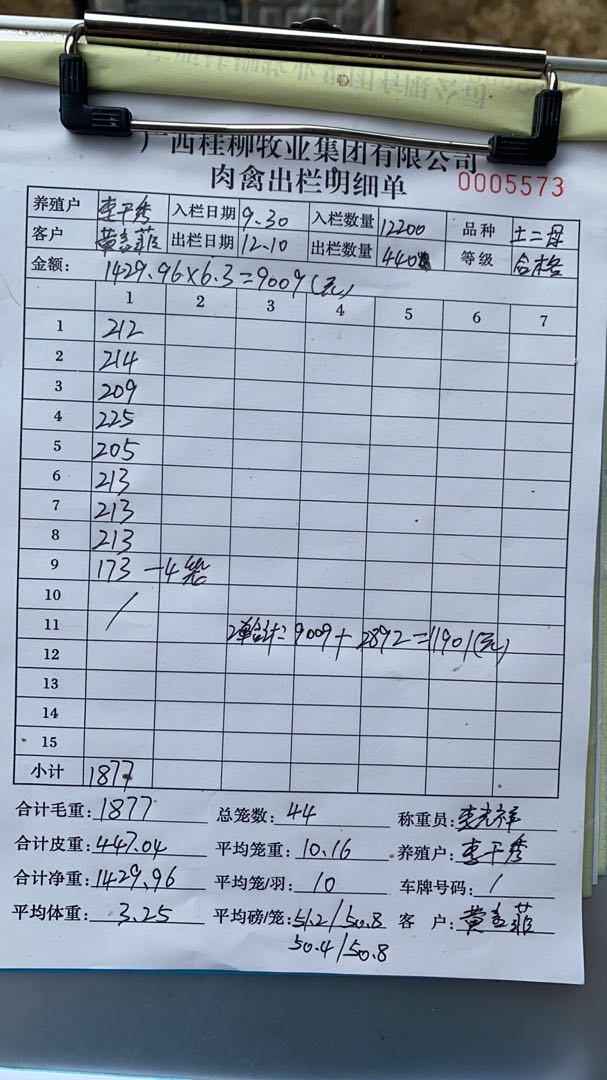 广西桂柳牧业集团有限公司
肉禽出栏明细单 0005573
养殖户 李干秀 入栏日期 9.30 入栏数量 12200 品种 土二母
客户 出栏日期 12.10 出栏数量 440 等级 合格
金额: 1429.96×6.3=9009(元)
1 2 3 4 5 6 7
1 212
2 214
3 209
4 225
5 205
6 213
7 213
8 213
9 173 -4笼
10 /
11 2单合计: 9009+2892=11901(元)
12
13
14
15
小计 1877
合计毛重: 1877 总笼数: 44 称重员:
合计皮重: 447.04 平均笼重: 10.16 养殖户: 李干秀
合计净重: 1429.96 平均笼/羽: 10 车牌号码: /
平均体重: 3.25 平均磅/笼: 51.2/50.8 客 户:
50.4/50.8